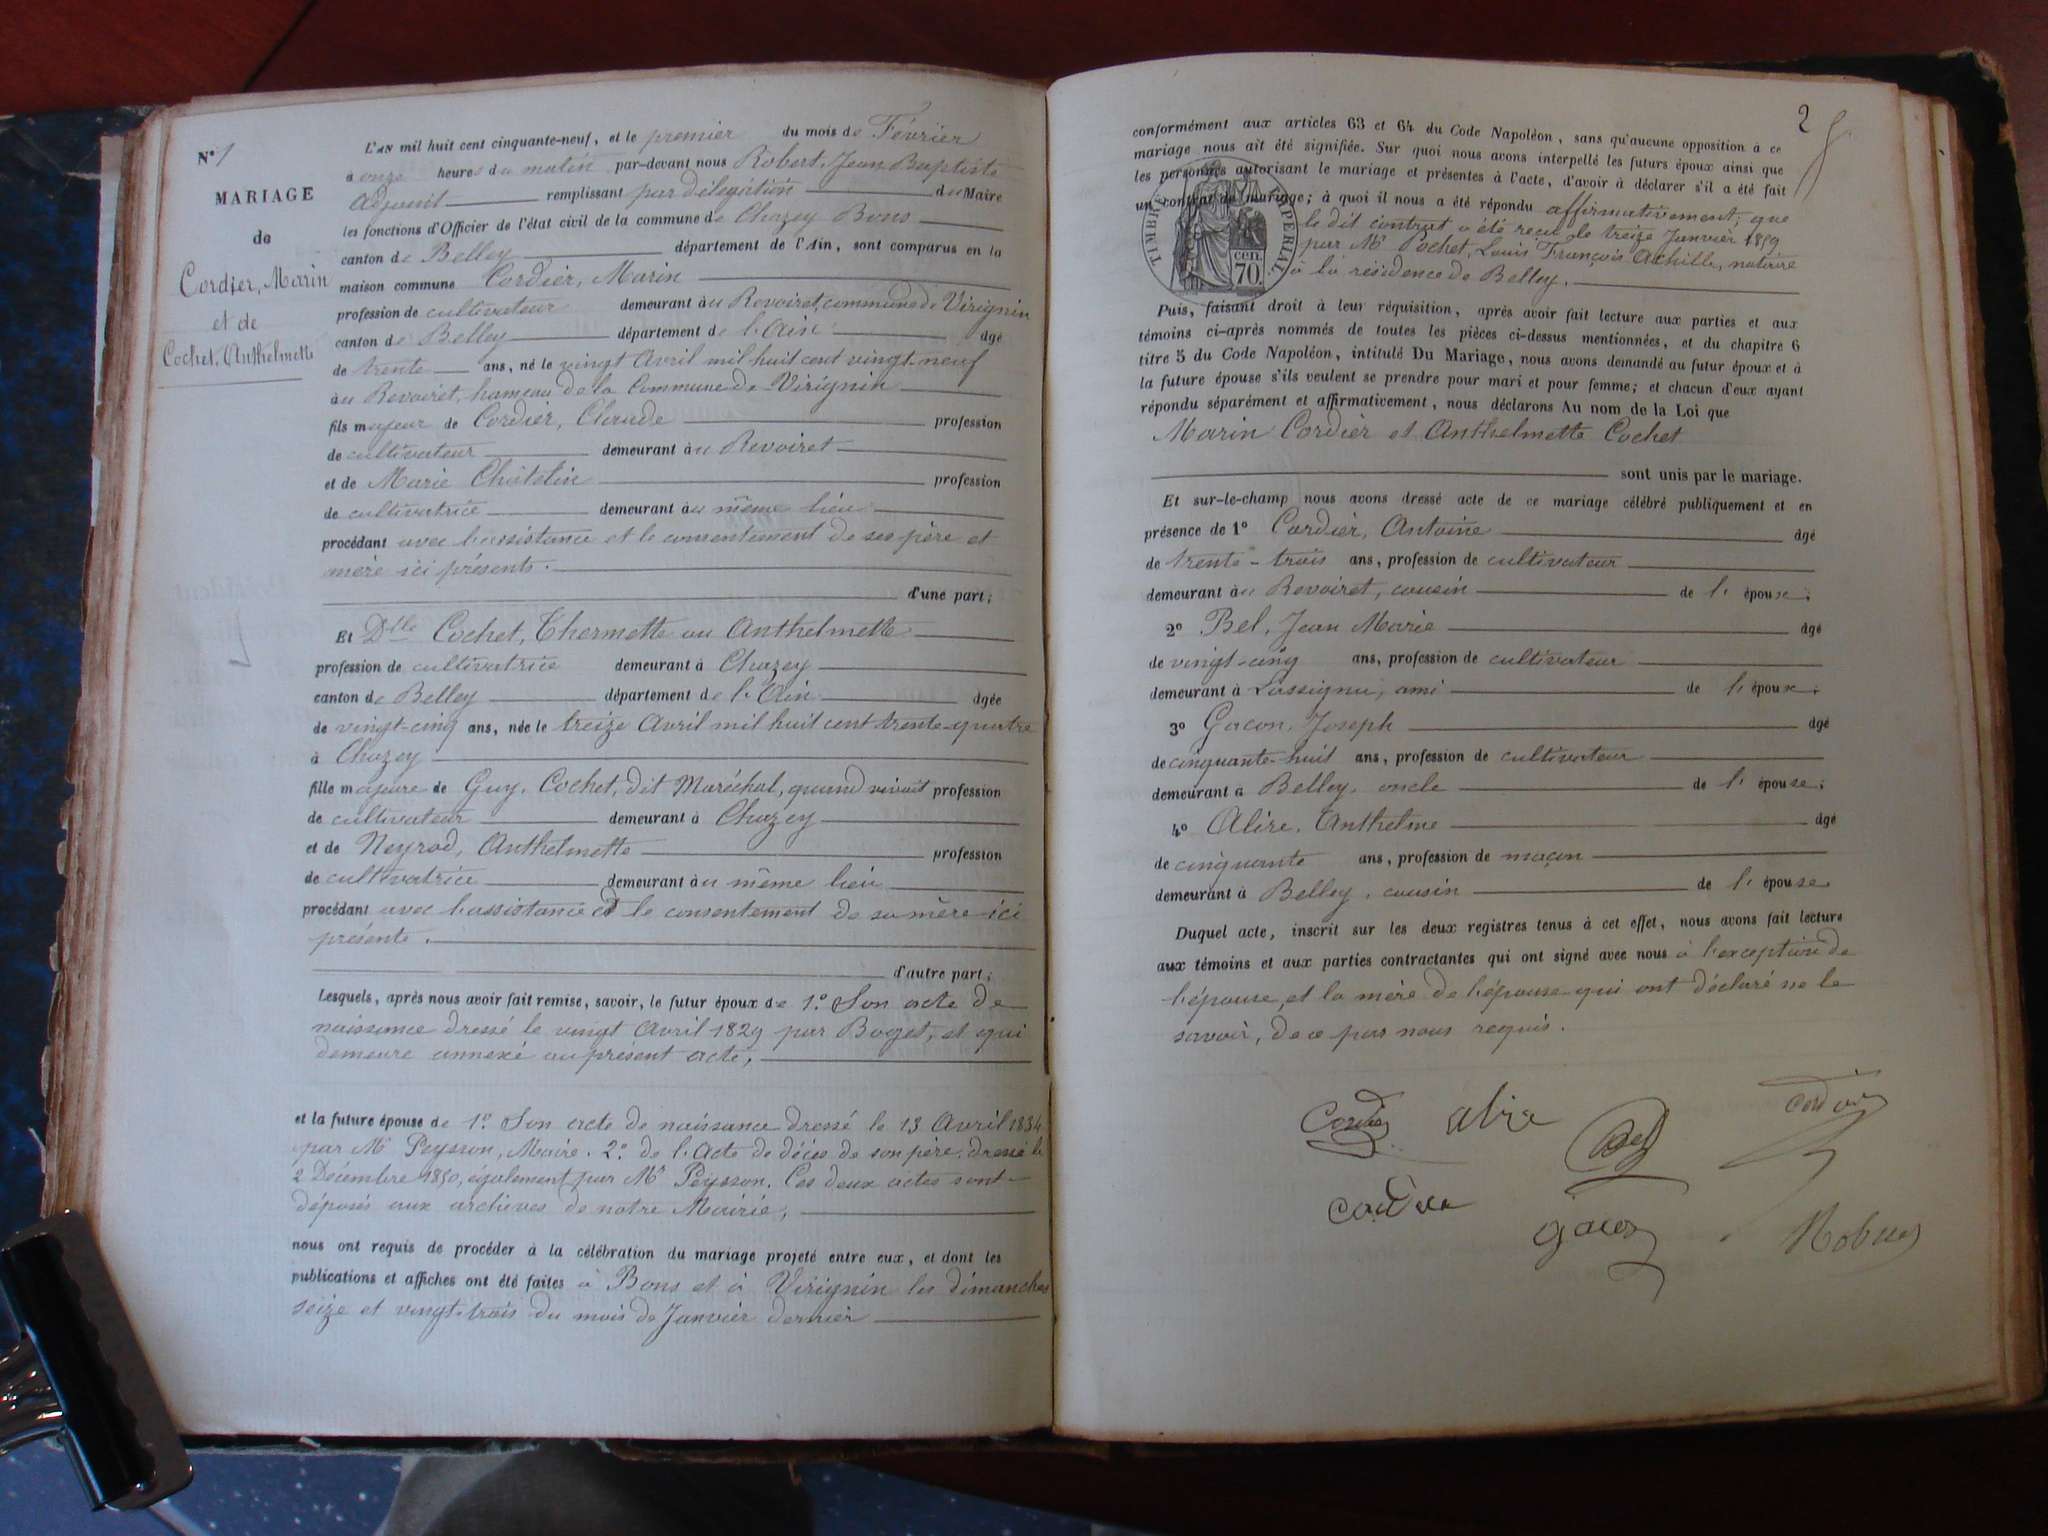 N° 1
MARIAGE
de
Cordier, Marin
et de
Cochet, Anthelmette
L'AN mil huit cent cinquante-neuf, et le premier du mois de Février
à onze heures du matin par-devant nous Robert, Jean Baptiste
Adjoint remplissant par délégation du Maire
les fonctions d'Officier de l'état civil de la commune de Chazey Bons
canton de Belley département de l'Ain, sont comparus en la
maison commune Cordier, Marin
profession de cultivateur demeurant au Revoiret, commune de Virignin
canton de Belley département de l'Ain âgé
de trente ans, né le vingt Avril mil huit cent vingt-neuf
au Revoiret, hameau de la Commune de Virignin
fils majeur de Cordier, Claude profession
de cultivateur demeurant au Revoiret
et de Marie Châtelin profession
de cultivatrice demeurant au même lieu
procédant avec l'assistance et le consentement de ses père et
mère ici présents.
d'une part;
Et Dlle Cochet, Thermette ou Anthelmette
profession de cultivatrice demeurant à Chazey
canton de Belley département de l'Ain âgée
de vingt-cinq ans, née le treize Avril mil huit cent trente-quatre
à Chazey
fille majeure de Guy, Cochet, dit Maréchal, quand vivait profession
de cultivateur demeurant à Chazey
et de Neyrod, Anthelmette profession
de cultivatrice demeurant au même lieu
procédant avec l'assistance et le consentement de sa mère ici
présente.
d'autre part;
Lesquels, après nous avoir fait remise, savoir, le futur époux de 1° Son acte de
naissance dressé le vingt Avril 1829 par Bozet, et qui
demeure annexé au présent acte,
et la future épouse de 1° Son acte de naissance dressé le 13 Avril 1834
par Mr Peysson, Maire. 2° de l'Acte de décès de son père dressé le
2 Décembre 1850, également par Mr Peysson. Ces deux actes sont
déposés aux archives de notre Mairie,
nous ont requis de procéder à la célébration du mariage projeté entre eux, et dont les
publications et affiches ont été faites à Bons et à Virignin les dimanches
seize et vingt-trois du mois de Janvier dernier
2
conformément aux articles 63 et 64 du Code Napoléon, sans qu'aucune opposition à ce
mariage nous ait été signifiée. Sur quoi nous avons interpellé les futurs époux ainsi que
les personnes autorisant le mariage et présentes à l'acte, d'avoir à déclarer s'il a été fait
un contrat de mariage; à quoi il nous a été répondu affirmativement; que
le dit contrat a été reçu le treize Janvier 1859
par Mr Pochet, Louis François Achille, notaire
à la résidence de Belley.
TIMBRE IMPERIAL
70 cen.
Puis, faisant droit à leur réquisition, après avoir fait lecture aux parties et aux
témoins ci-après nommés de toutes les pièces ci-dessus mentionnées, et du chapitre 6
titre 5 du Code Napoléon, intitulé Du Mariage, nous avons demandé au futur époux et à
la future épouse s'ils veulent se prendre pour mari et pour femme; et chacun d'eux ayant
répondu séparément et affirmativement, nous déclarons Au nom de la Loi que
Marin Cordier et Anthelmette Cochet
sont unis par le mariage.
Et sur-le-champ nous avons dressé acte de ce mariage célébré publiquement et en
présence de 1° Cordier, Antoine âgé
de trente-trois ans, profession de cultivateur
demeurant au Revoiret, cousin de l'époux;
2° Bel, Jean Marie âgé
de vingt-cinq ans, profession de cultivateur
demeurant à Lassignu, ami de l'époux;
3° Gacon, Joseph âgé
de cinquante-huit ans, profession de cultivateur
demeurant à Belley, oncle de l'épouse;
4° Alire, Anthelme âgé
de cinquante ans, profession de maçon
demeurant à Belley, cousin de l'épouse
Duquel acte, inscrit sur les deux registres tenus à cet effet, nous avons fait lecture
aux témoins et aux parties contractantes qui ont signé avec nous à l'exception de
l'épouse, et la mère de l'épouse qui ont déclaré ne le
savoir, de ce par nous requis.
Cordier alire Bel Cordier
Cordier gacon Robert